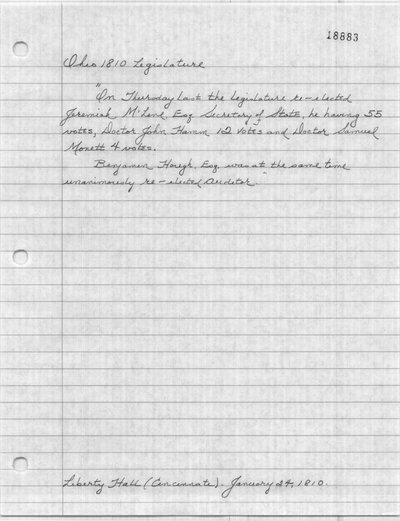 18883
Ohio 1810 Legislature
"On Thursday last the legislature re-elected
Jeremiah M'Lene, Esq Secretary of State, he having 55
votes, Doctor John Hamm 12 votes and Doctor Samuel
Monett 4 votes.
Benjamin Hough, Esq. was at the same time
unanimously re-elected Auditor."
Liberty Hall (Cincinnati). January 24, 1810.